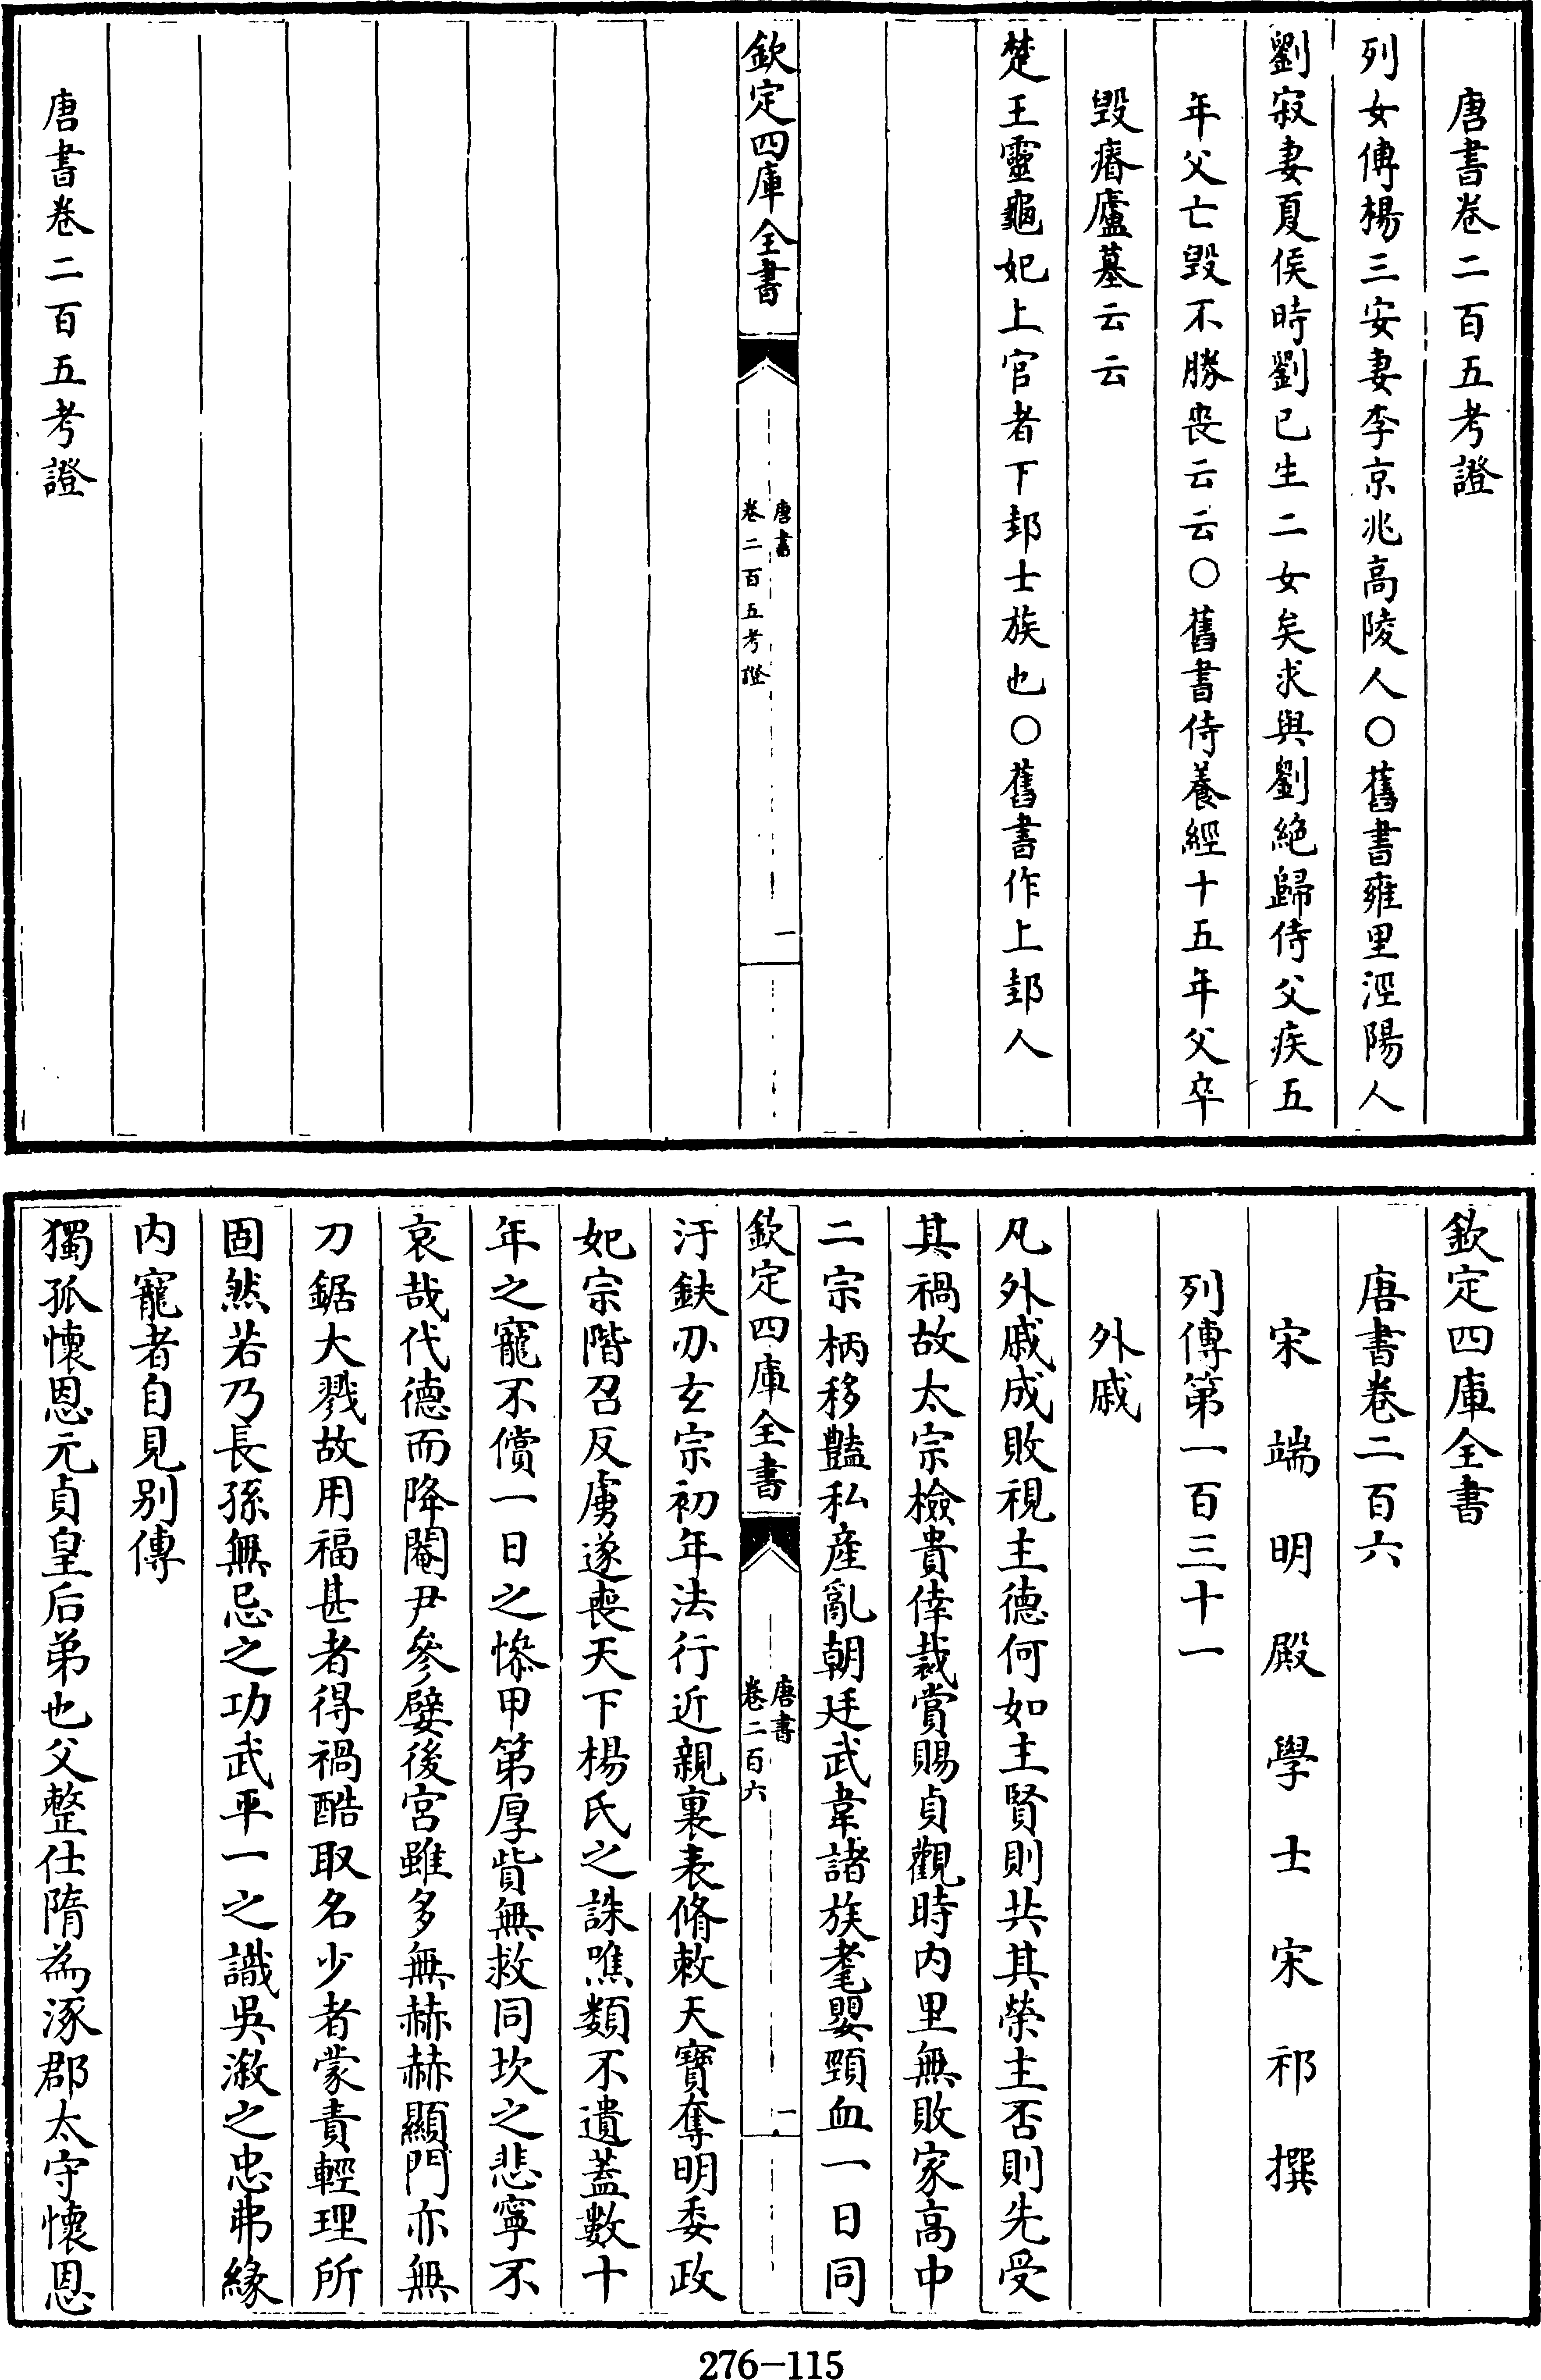 唐書卷二百五考證
列女傳楊三安妻李京兆高陵人○舊書雍里涇陽人
劉寂妻夏侯時劉已生二女矣求與劉絶歸侍父疾五
年父亡毀不勝喪云云○舊書侍養經十五年父卒
毀瘠廬墓云云
楚王靈龜妃上官者下邽士族也○舊書作上邽人
欽定四庫全書
唐書
卷二百五考證
一
唐書卷二百五考證
欽定四庫全書
唐書卷二百六
宋端明殿學士宋祁撰
列傳第一百三十一
外戚
凡外戚成敗視主德何如主賢則共其榮主否則先受
其禍故太宗檢貴倖裁賞賜貞觀時内里無敗家高中
二宗柄移豔私產亂朝廷武韋諸族耄嬰頸血一日同
欽定四庫全書
唐書
卷二百六
一
汙鈇刅玄宗初年法行近親裏表脩敕天寶奪明委政
妃宗階召反虜遂喪天下楊氏之誅噍類不遺蓋數十
年之寵不償一日之慘甲第厚貲無救同坎之悲寧不
哀哉代德而降閹尹參嬖後宮雖多無赫赫顯門亦無
刀鋸大戮故用福甚者得禍酷取名少者蒙責輕理所
固然若乃長孫無忌之功武平一之識吳溆之忠弗緣
内寵者自見别傳
獨孤懷恩元貞皇后弟也父整仕隋為涿郡太守懷恩
276-115